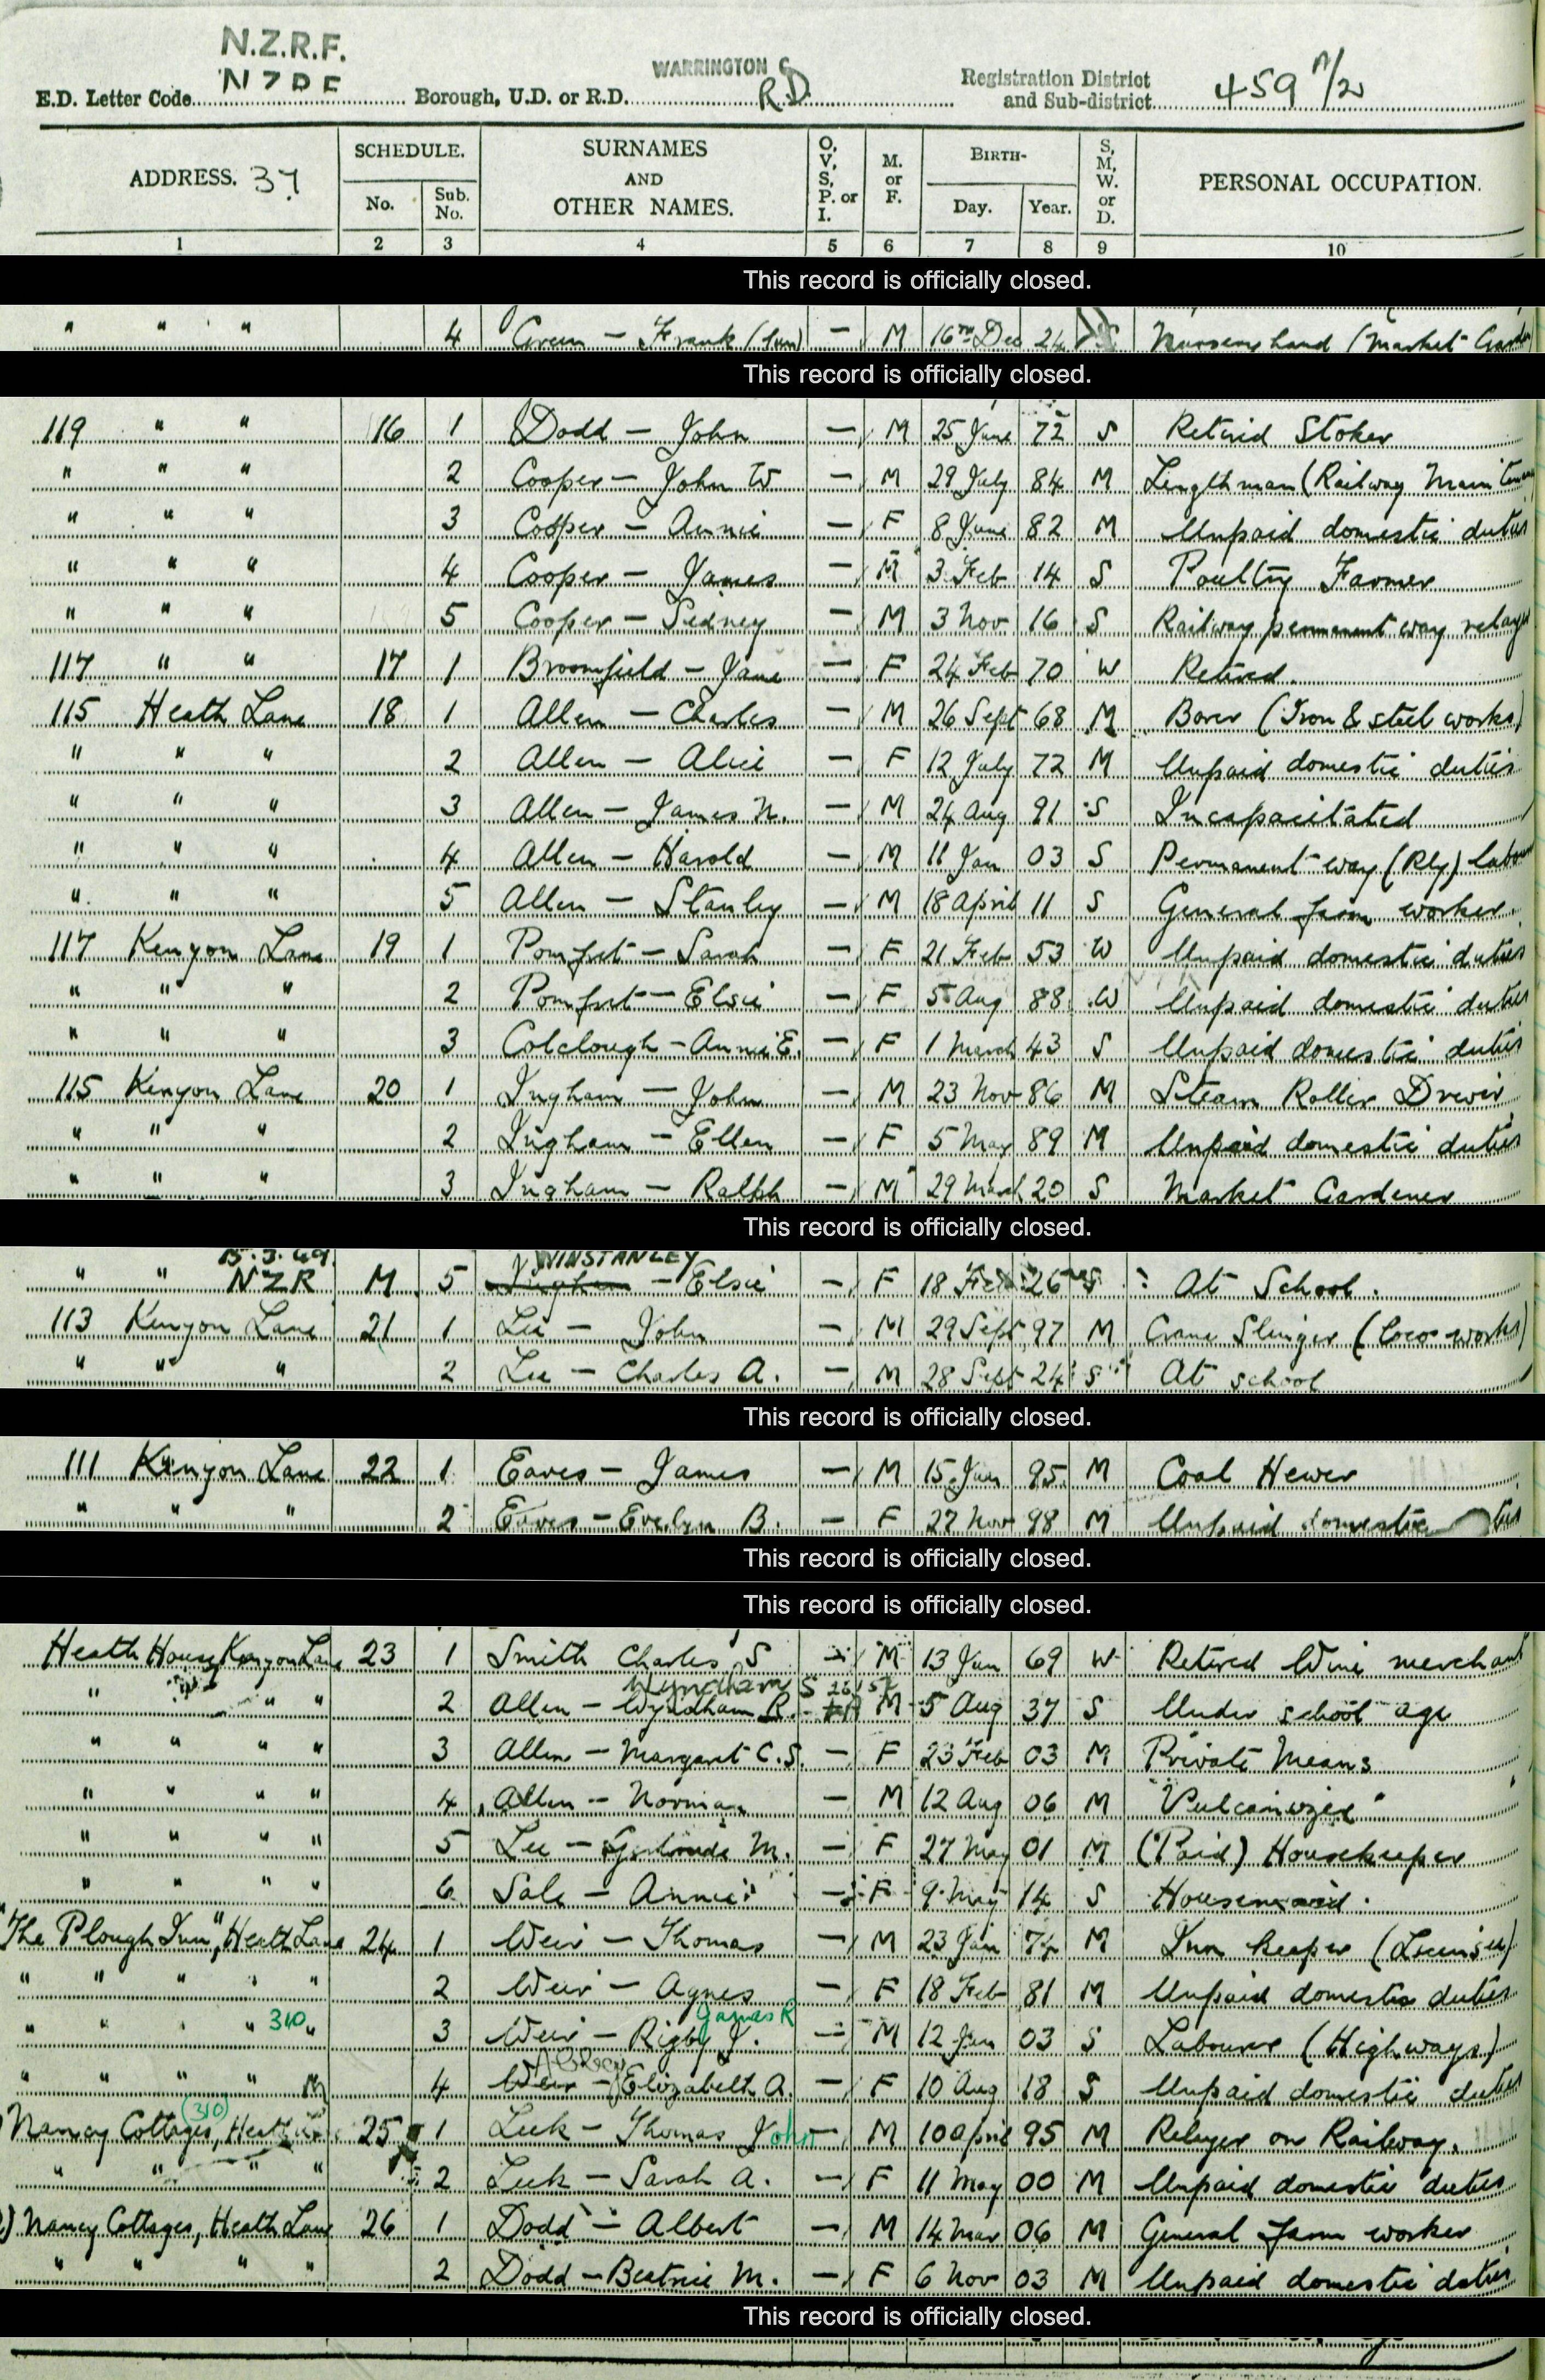 N.Z.R.F.
E.D. Letter Code NZDF Borough, U.D. or R.D. WARRINGTON R.D. Registration District and Sub-district 459 1/2
ADDRESS. 37 SCHEDULE. No. Sub. No. SURNAMES AND OTHER NAMES. O, V, S, P. or I. M. or F. BIRTH- Day. Year. S, M, W. or D. PERSONAL OCCUPATION.
1 2 3 4 5 6 7 8 9 10
This record is officially closed.
" " " 4 Green - Frank (Jun) - M 16th Dec 24 S Nursery hand (Market
This record is officially closed.
119 " " 16 1 Dodd - John - M 25 June 72 S Retired Stoker
" " " 2 Cooper - John W - M 29 July 84 M Lengthman (Railway
" " " 3 Cooper - Annie - F 8 June 82 M Unpaid domestic duties
" " " 4 Cooper - James - M 3 Feb 14 S Poultry Farmer
" " " 5 Cooper - Sidney - M 3 Nov 16 S Railway permanent way
117 " " 17 1 Broomfield - Jane - F 24 Feb 70 W Retired.
115 Heath Lane 18 1 Allen - Charles - M 26 Sept 68 M Borer (Iron & steel works)
" " " 2 Allen - Alice - F 12 July 72 M Unpaid domestic duties
" " " 3 Allen - James N. - M 24 Aug 91 S Incapacitated
" " " 4 Allen - Harold - M 11 Jan 03 S Permanent way (Rly)
" " " 5 Allen - Stanley - M 18 April 11 S General farm worker.
117 Kenyon Lane 19 1 Pomfret - Sarah - F 21 Feb 53 W Unpaid domestic duties
" " " 2 Pomfret - Elsie - F 5 Aug 88 W Unpaid domestic duties
" " " 3 Colclough - Annie E. - F 1 March 43 S Unpaid domestic duties
115 Kenyon Lane 20 1 Ingham - John - M 23 Nov 86 M Steam Roller Driver
" " " 2 Ingham - Ellen - F 5 May 89 M Unpaid domestic duties
" " " 3 Ingham - Ralph - M 29 March 20 S Market Gardener
This record is officially closed.
15.3.49. WINSTANLEY
" " NZR M 5 Ingham - Elsie - F 18 Feb 26 S At School.
113 Kenyon Lane 21 1 Lee - John - M 29 Sept 97 M Crane Slinger (Loco works)
" " " 2 Lee - Charles A. - M 28 Sept 24 S At school
This record is officially closed.
111 Kenyon Lane 22 1 Eaves - James - M 15 Jan 95 M Coal Hewer
" " " 2 Eaves - Evelyn B. - F 27 Nov 98 M Unpaid domestic
This record is officially closed.
This record is officially closed.
Heath House Kenyon Lane 23 1 Smith Charles S - M 13 Jan 69 W Retired Wine merchant
Wyndham S
" " " 2 Allen - Wyndham R. - M 5 Aug 37 S Under school age
" " " " 3 Allen - Margaret C.S. - F 23 Feb 03 M Private Means
" " " " 4 Allen - Norman - M 12 Aug 06 M "Vulcanizer"
" " " " 5 Lee - Gertrude M. - F 27 May 01 M (Paid) Housekeeper
" " " " 6 Sale - Annie - F 9 May 14 S Housemaid.
"The Plough Inn", Heath Lane 24 1 Weir - Thomas - M 23 Jan 74 M Inn keeper (Licensee)
" " " " " 2 Weir - Agnes - F 18 Feb 81 M Unpaid domestic duties
James R
" " " " 310 " 3 Weir - Rigby J. - M 12 Jan 03 S Labourer (Highways)
" " " " M 4 Weir - Elizabeth A. - F 10 Aug 18 S Unpaid domestic duties
(310)
Nancy Cottages, Heath 25 1 Leek - Thomas John - M 10 April 95 M Relayer on Railway.
" " " " 2 Leek - Sarah A. - F 11 May 00 M Unpaid domestic duties
Nancy Cottages, Heath Lane 26 1 Dodd - Albert - M 14 Mar 06 M General farm worker
" " " " 2 Dodd - Beatrice M. - F 6 Nov 03 M Unpaid domestic duties
This record is officially closed.